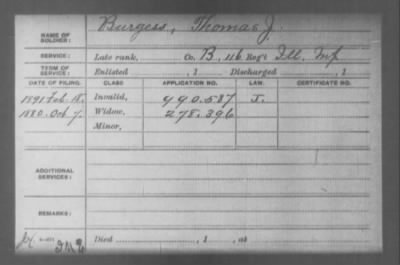 NAME OF SOLDIER: Burgess, Thomas J.
SERVICE: Late rank, Co. B, 116 Reg't Ill. Inf
TERM OF SERVICE: Enlisted , 1 Discharged , 1
DATE OF FILING. CLASS APPLICATION NO. LAW. CERTIFICATE NO.
1891 Feb. 18. Invalid, 990.587 J.
1880. Oct 7. Widow, 278.396
Minor,
ADDITIONAL SERVICES:
REMARKS:
Died , 1 , at